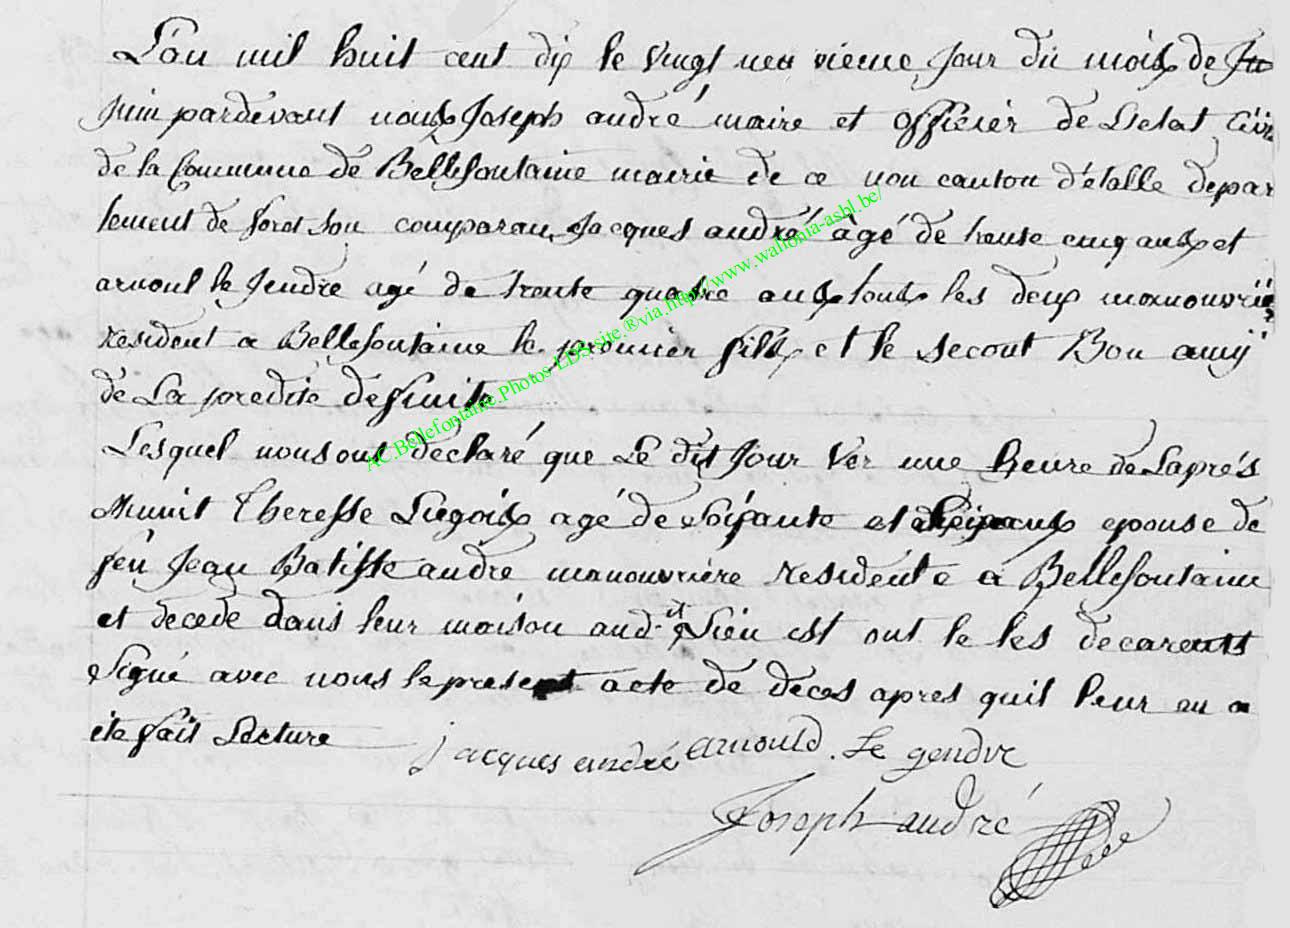 L'an mil huit cent dix le vingt neu vieme jour du mois de Ju
juin pardevant nous Joseph andré maire et officier de L'etat Civi
de la Commune de Bellefontaine mairie de ce non canton d'étalle depar
tement de foret son comparau Jacques andré âgé de trente cinq ans et
arnoul le Jendre agé de trente quatre ans tous les deux manouvrié
résident a Bellefontaine le premier fils et le secont Bon amij
de La predite defunte
Lesquel nous ont declaré que Le dit Jour Ver une heure de L'aprés
Minuit Theresse Liegois agé de Soisante et ans epouse de
feu Jean Batiste andre manouvriere residente a Bellefontaine
et decede dans leur maison aud.it Sieu est ont le les decarents
Signé avec nous le present acte de déces apres quil leur en a
ete fait Lecture jacques andré arnould. Le gendre
Joseph andré
AC.Bellefontaine.Photos LDS site.®via.http://www.wallonia-asbl.be/